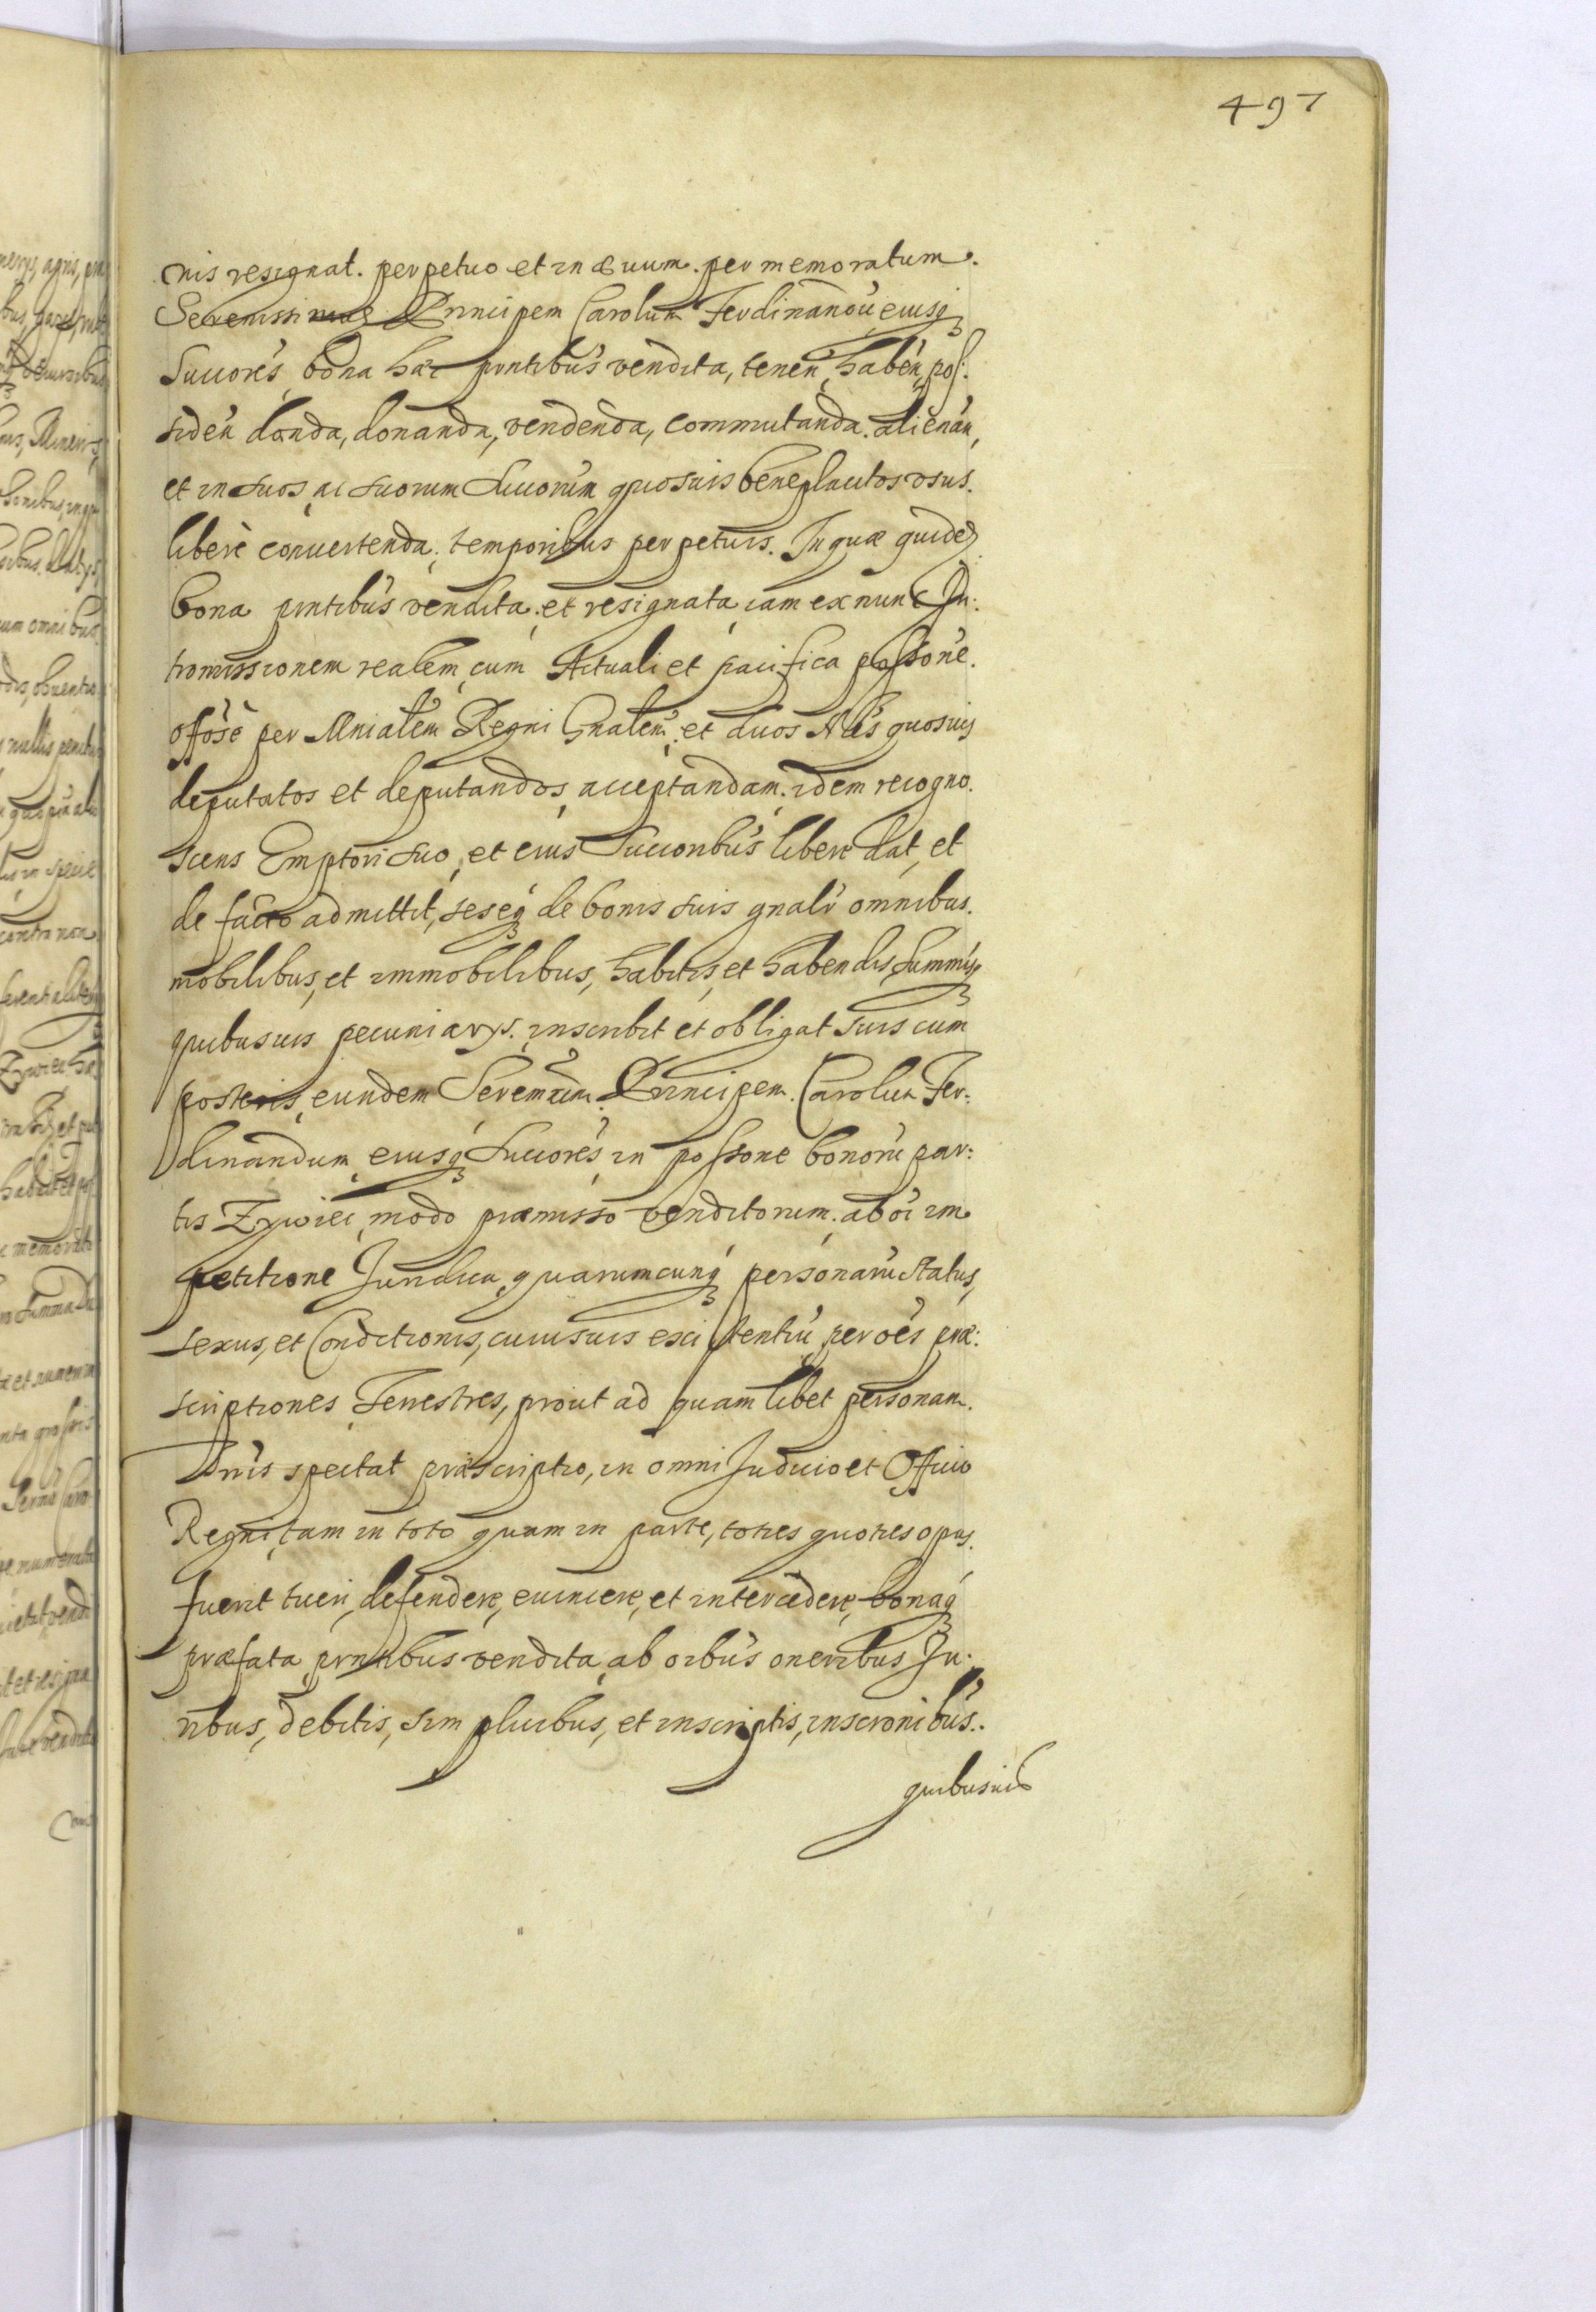 497
nis resignat. perpetuo et in æuum. per memoratum.
Serenissimum Principem Carolum Ferdinandū eiusq
Succorēs bona hæc prntibus vendita, tenen, haben, pos.
siden danda, donanda, vendenda, commutanda. alienan,
et in suos ac suorum Succorum quosuis beneplacitos vsus.
liberè conuertenda. temporibus perpetuis. In quæ quidem
bona pntibus vendita. et resignata iam ex nunc In:
tromissionem realem cum Actuali et pacifica possone.
offose per Mnialem Regni Gnalem. et duos Nles quosuis
deputatos et deputandos acceptandam. idem recogno.
scens Emptori suo, et eius Succoribus libere dat, et
de facto admittit, seseq de bonis suis gnalr omnibus.
mobilibus, et immobilibus, habitis, et habendis summisq
quibusuis pecuniarys. inscribit et obligat suis cum
posteris eundem Serenmum. Principem. Carolum Fer:
dinandum eiusq Succores in possone bonorū par:
tis Zywiec modo præmisso venditorum. ab oi im
petitione Juridica, quarumcunq personarū status,
sexus, et Conditionis, cuiusuis existentiū per oēs præ:
scriptiones Terrestres, prout ad quamlibet personam.
Juris spectat præscriptio, in omni Judicio et Officio
Regni, tam in toto quam in parte, toties quoties opus.
fuerit tueri, defendere, euincere, et intercedere, bonaq
præfata prntibus vendita ab oibus oneribus Ju:
ribus, debitis, simplicibus, et inscriptis, inscronibus..
quibusuis